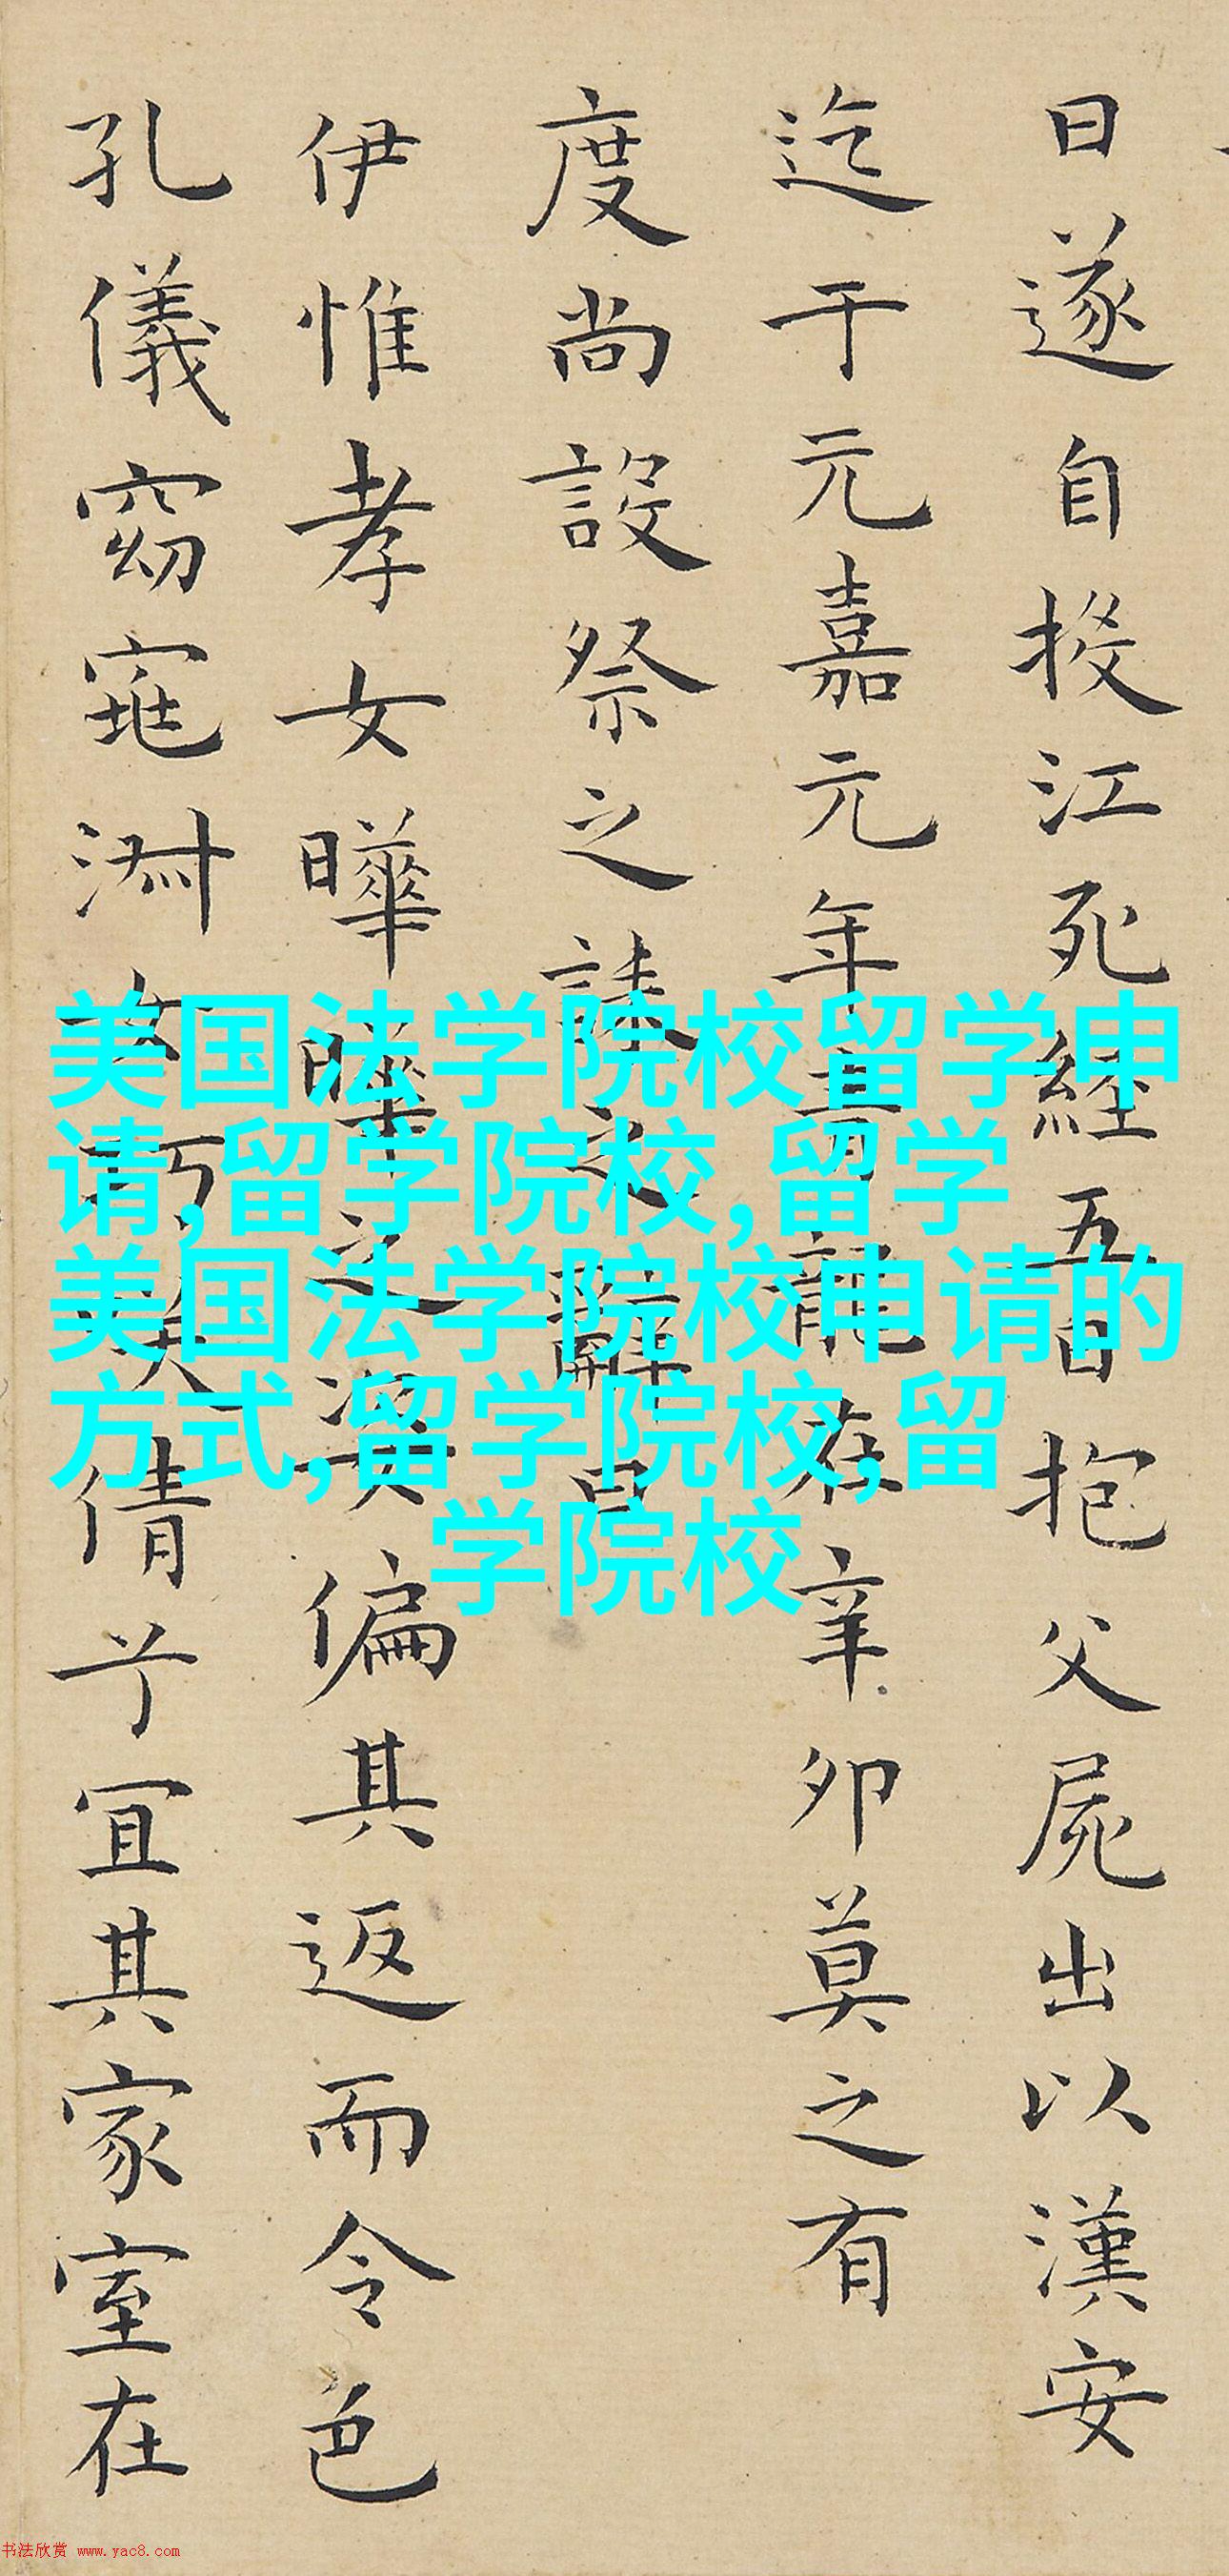 日遂自投江死經五日抱父屍出以漢安
迄于元嘉元年青龍在辛卯莫之有
度尚設祭之誄之辭曰
伊惟孝女曄曄之姿偏其返而令色
孔儀窈窕淑女巧笑倩兮宜其家室在
美国法学院校留学申
请,留学院校,留学
美国法学院校申请的
方式,留学院校,留
学院校
书法欣赏 www.yac8.com